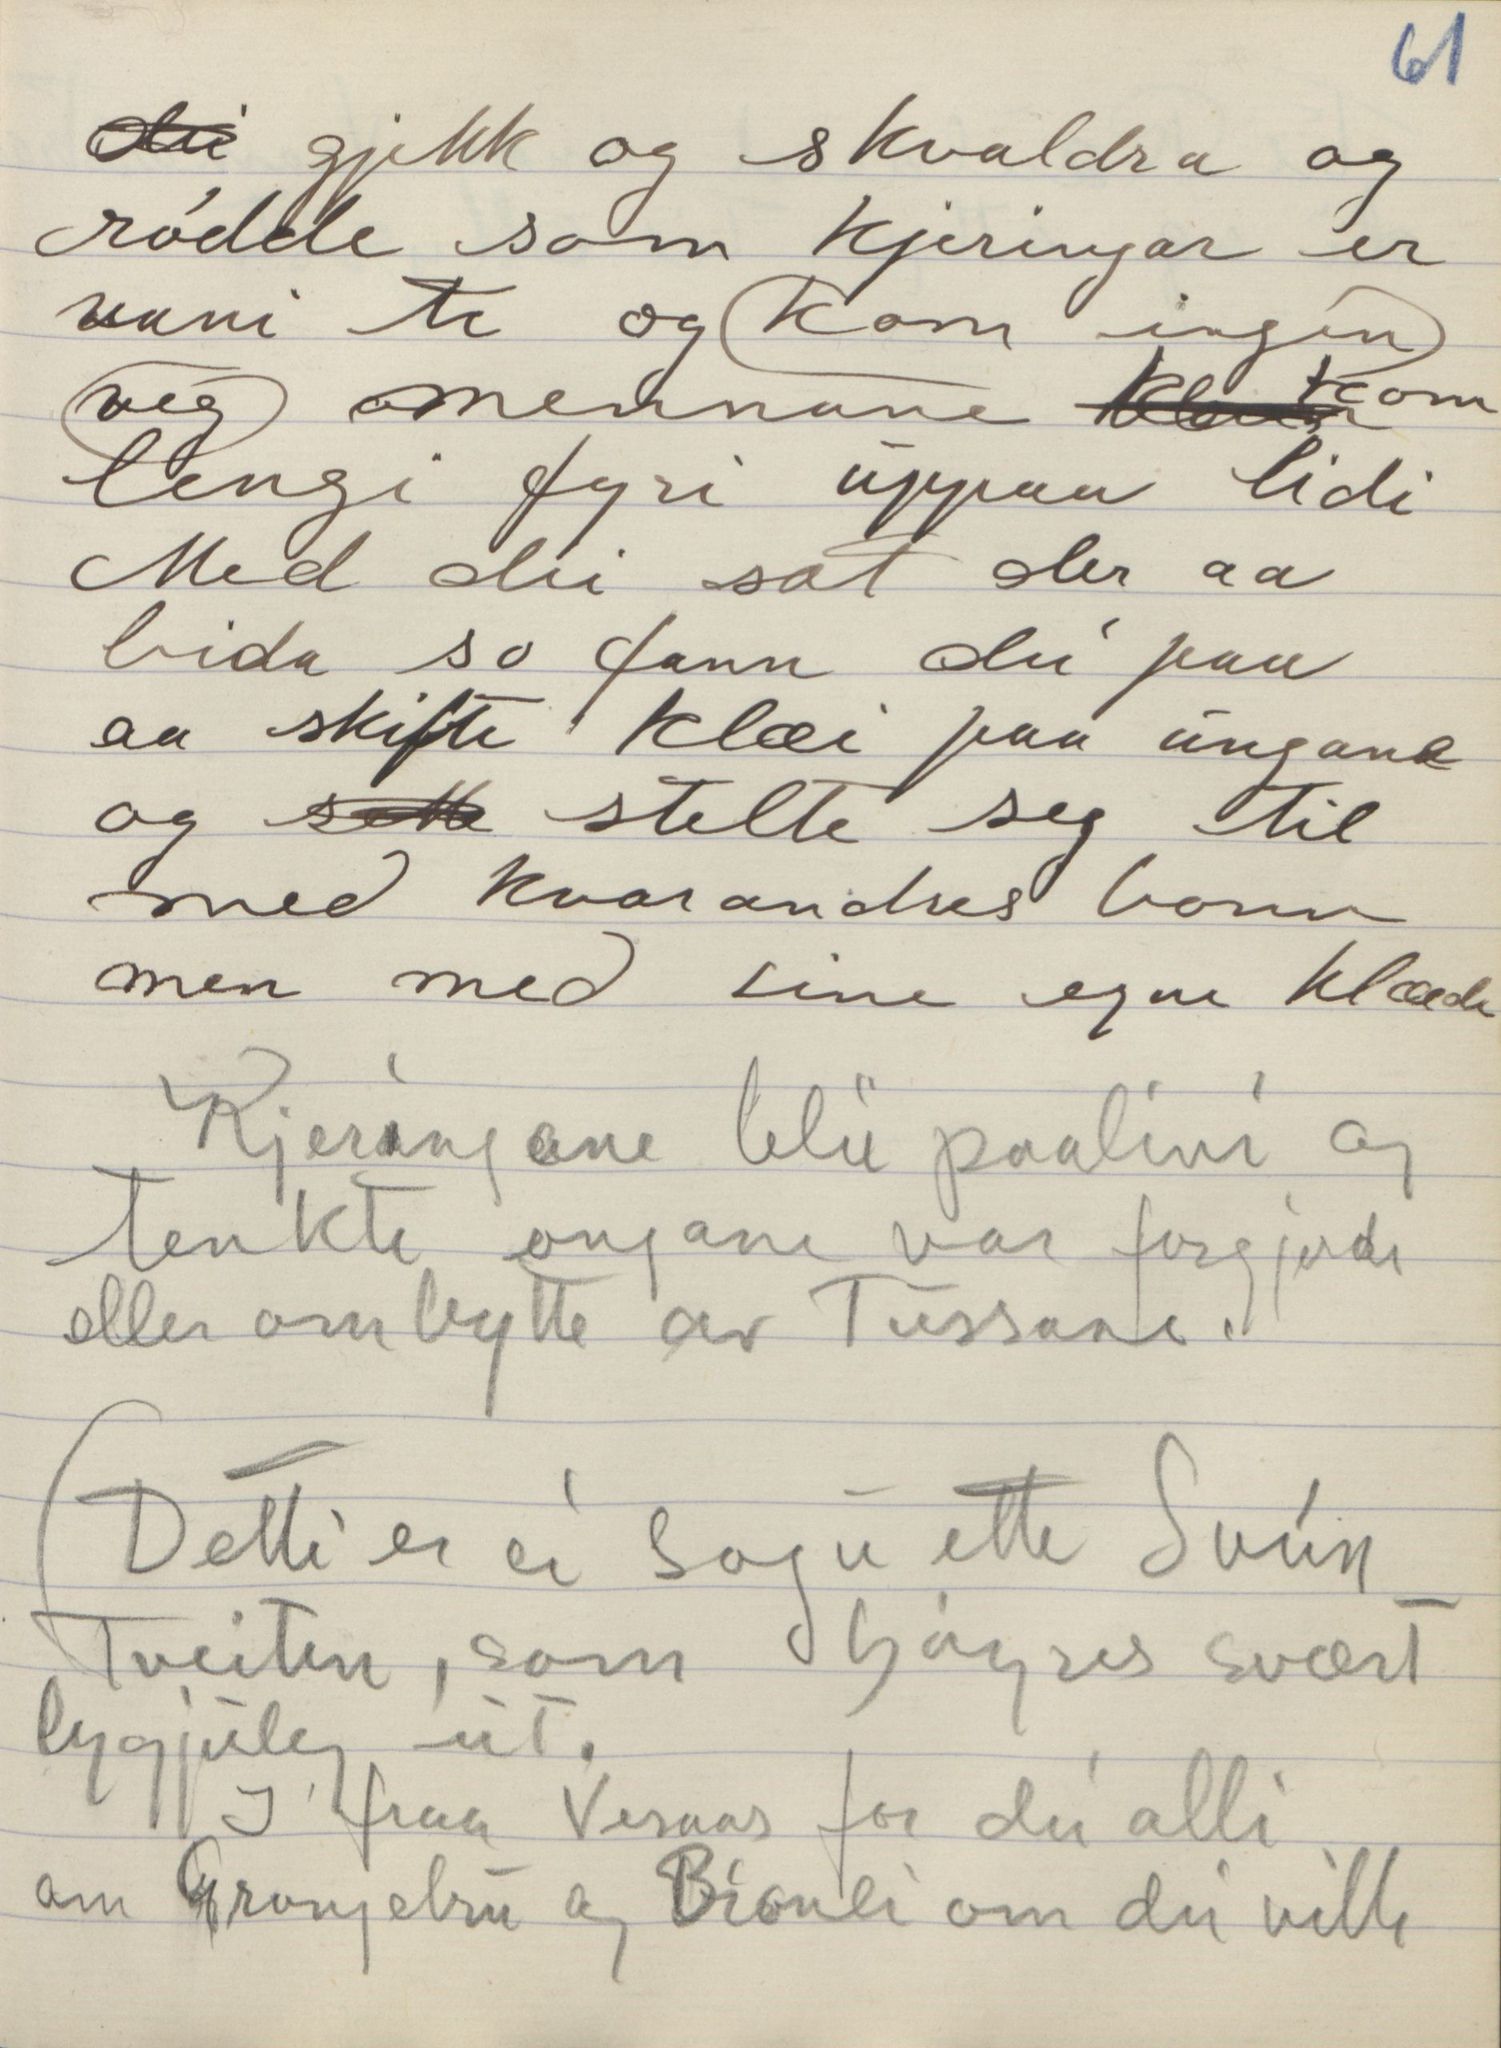 61
dei gjekk og skvaldra og
rødde som kjeringar er
vani te og (kom ingin
veg) mennane kom
lengi fyri uppaa lidi
Med dei sat der aa
bida so fann dei paa
aa skifte klæi paa ungane
og sette stelte seg til
med kvarandres bonn
men med sine egne klæde
Kjeringane blei paalini og
tenkte ongane var forgjorde
eller ombytte av Tussane.
(Detti er ei sogu ette Svein
Tveiten, som høyres svært
lygjuleg ut.
I fraa Vesaas for dei alli
om Grongebru og Bionli om dei ville